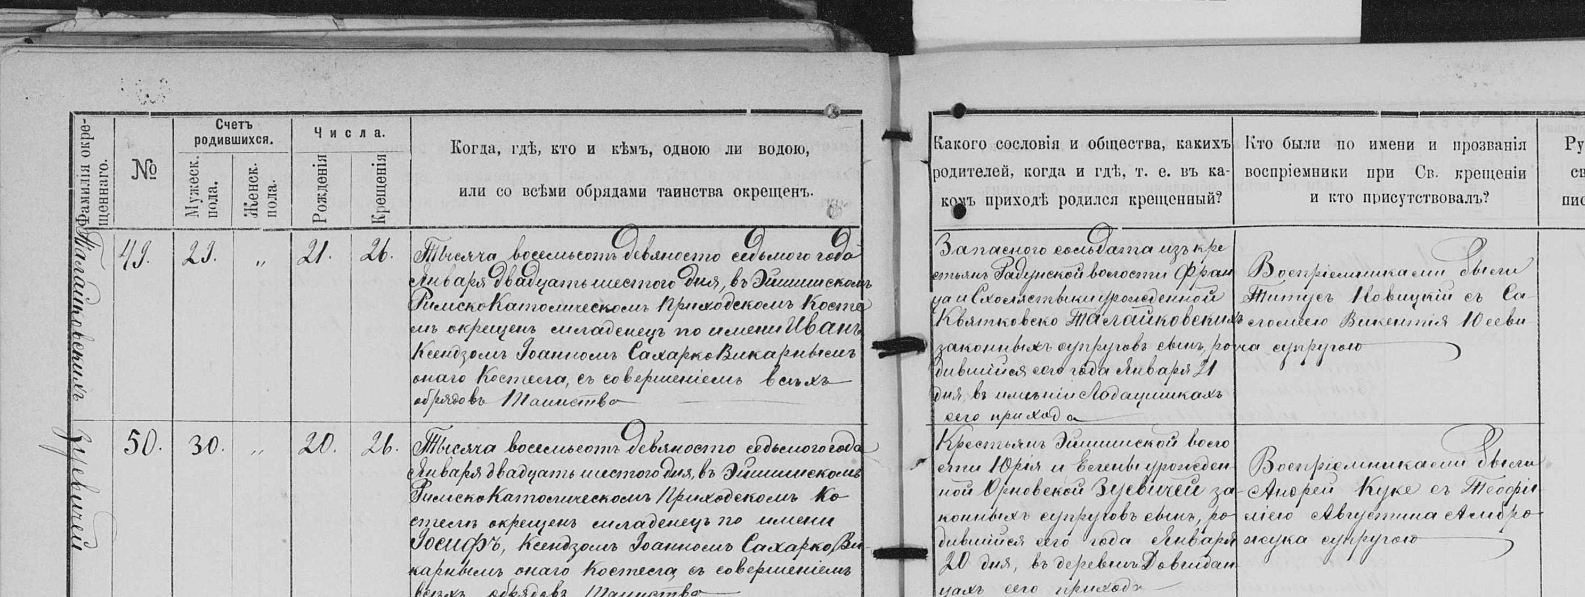 Фамилія окре-
щеннаго.
№
Счетъ
родившихся.
Мужеск.
пола.
Женск.
пола.
Числа.
Рожденія
Крещенія
Когда, гдѣ, кто и кѣмъ, одною ли водою,
или со всѣми обрядами таинства окрещенъ.
Какого сословія и общества, какихъ
родителей, когда и гдѣ, т. е. въ ка-
комъ приходѣ родился крещенный?
Кто были по имени и прозванія
воспріемники при Св. крещеніи
и кто присутствовалъ?
Талайковскихъ
49.
29.
„
21.
26.
Тысяча восемьсотъ девяносто седьмого года
Января двадцать шестого дня, въ Эйшишскомъ
Римско Католическомъ Приходскомъ Косте
лѣ окрещенъ младенецъ по имени Иванъ
Ксендзомъ Іоанномъ Сахарко Викарнымъ
онаго Костела, съ совершеніемъ всѣхъ
обрядовъ Таинства
Запасного солдата изъ кре
стьянъ Радунской волости Фран
ца и Схоластыки урожденной
Квятковско Талайковскихъ
законныхъ супруговъ сынъ, ро
дившійся сего года Января 21
дня, въ имѣніи
сего прихода
Воспріемниками были
Титусъ Новицкій съ Са
ломеею Викентія
супругою
Зуевичей
50.
30.
„
20.
26.
Тысяча восемьсотъ девяносто седьмого года
Января двадцать шестого дня, въ Эйшишскомъ
Римско Католическомъ Приходскомъ Ко
стелѣ окрещенъ младенецъ по имени
Іосифъ, Ксендзомъ Іоанномъ Сахарко, Ви
карнымъ онаго Костела, съ совершеніемъ
всѣхъ обрядовъ Таинства
Крестьянъ Эйшишской воло
сти Юрія и Елены урожден
ной Орновской Зуевичей за
конныхъ супруговъ сынъ, ро
дившійся сего года Января
20 дня, въ деревнѣ Довгидан
цахъ сего прихода
Воспріемниками были
Андрей Куке съ Теофи
лією Августина Амбро
жука супругою
Ру
св
пис